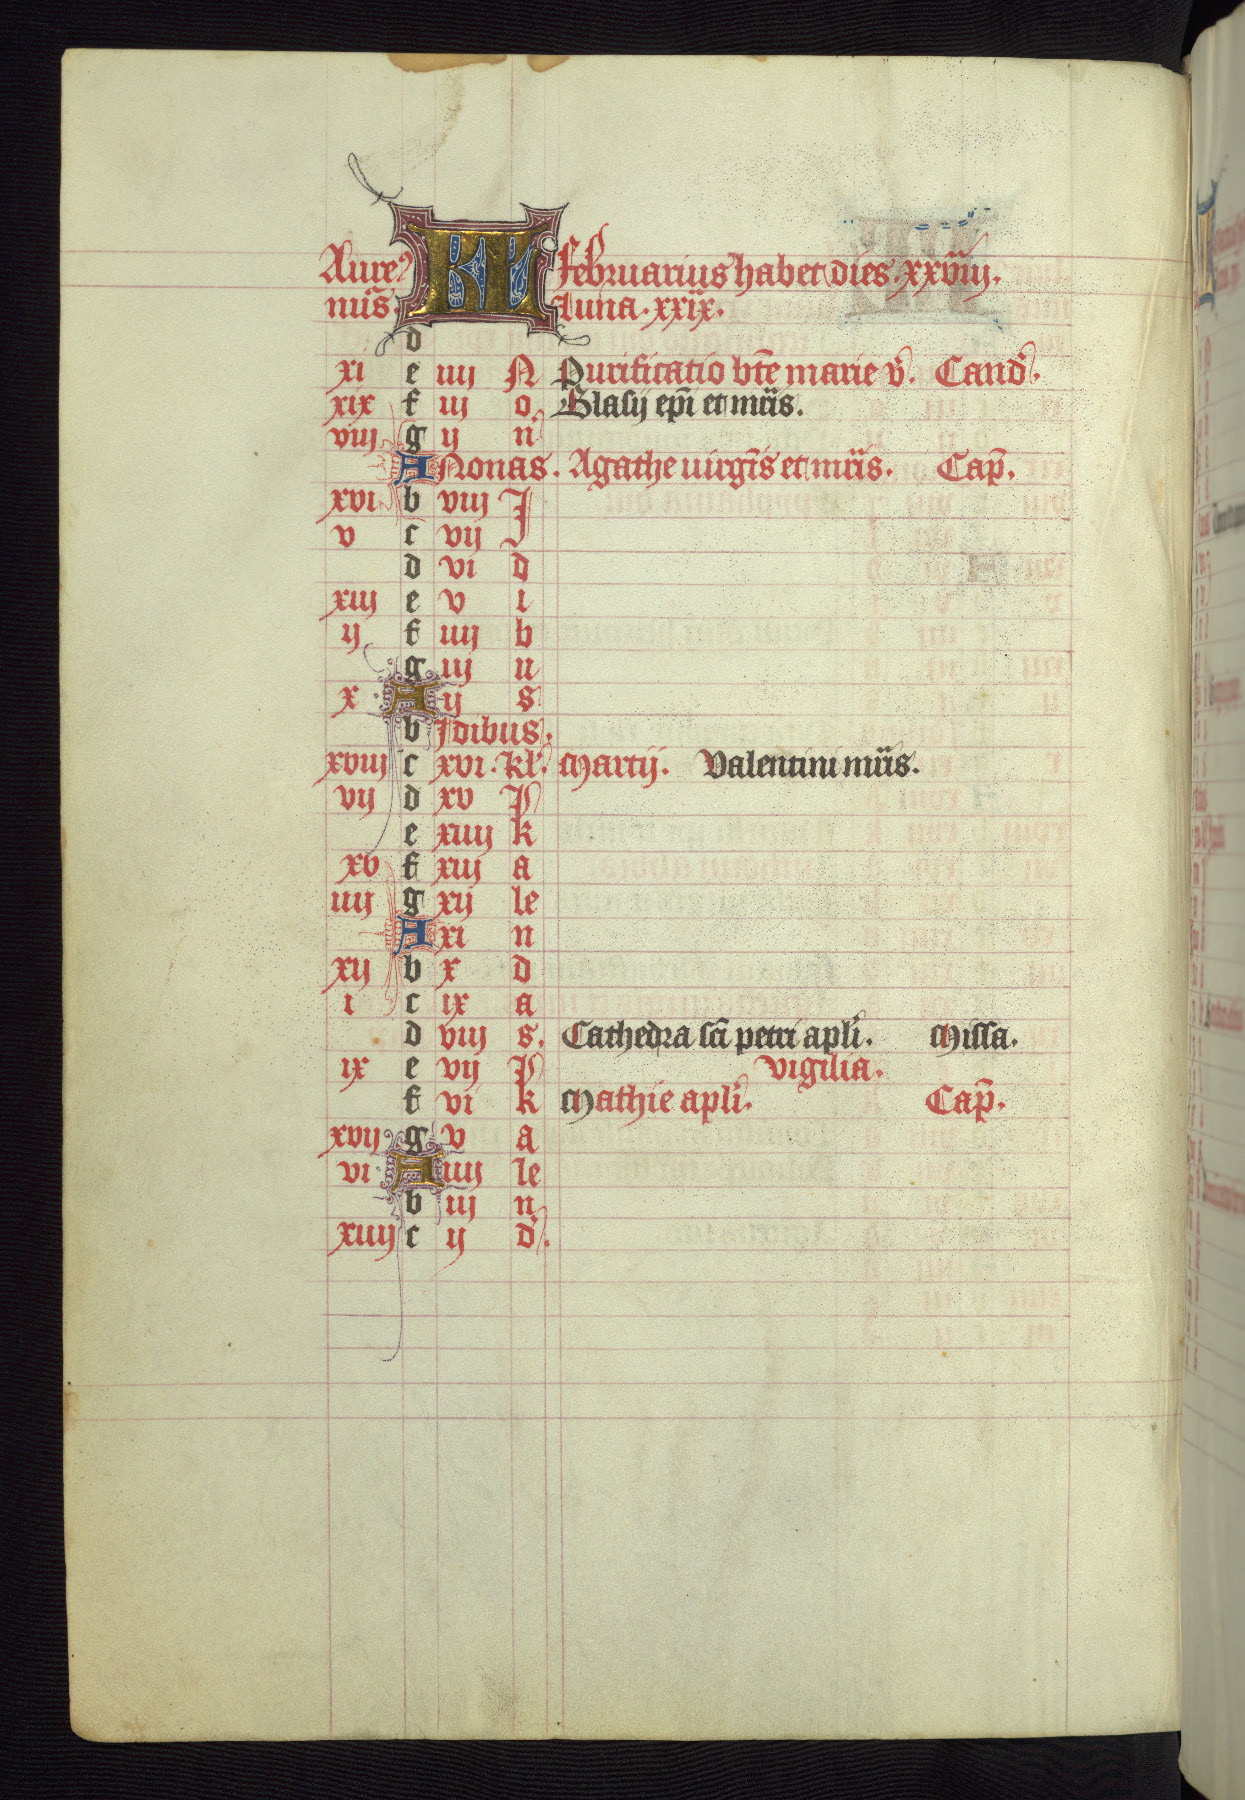 Aure9 KL Februarius habet dies . xxviij.
mu̅s . Luna . xxix.
d
xi e iiij N Purificatio bt̅e marie v̕. Cand̕.
xix f iij o Blasij ep̅i et mr̅is.
viij g ij n̕
A Nonas . Agathe uirgi̅s et mr̅is. Cap̅.
xvi b viij J
v c vij
d vi d
xiij e v i
ij f iiij b
g iij u
x A ij s
b Jdibus.
xviij c xvi . kl̕. Marcij. Valentini mr̅is.
vij d xv P
e xiiij k
xv f xiij a
iiij g xij le
A xi n
xij b x d
i c ix a
d viij s. Cathedra sc̅i petri apl̕i. Missa.
ix e vij P vigilia.
f vi k Mathie apl̕i. Cap̅.
xvij g v a
vi A iiij le
b iij n
xiiij c ij d̕.